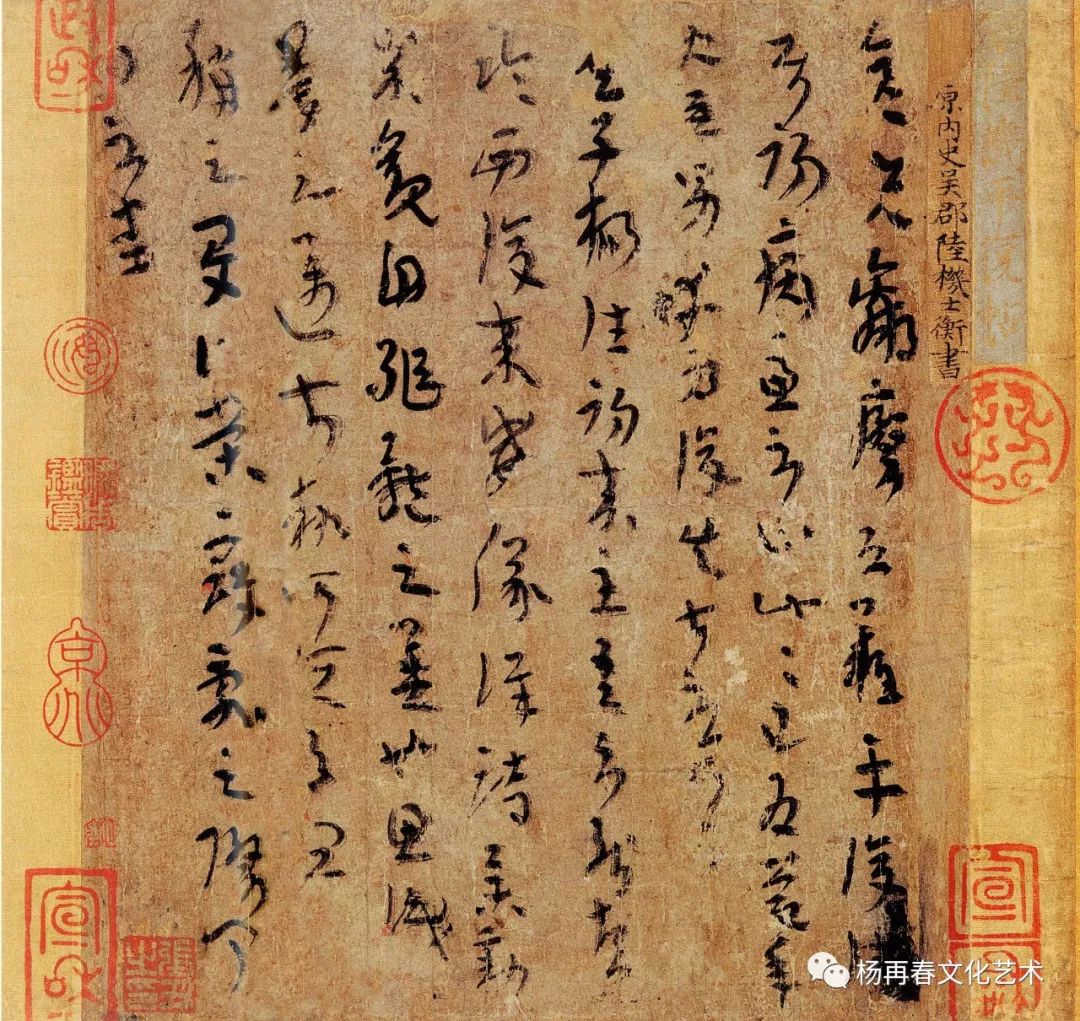 晉陸機平復帖
原内史吳郡陸機士衡書
彦先羸瘵恐難平復往屬
初病慮不止此此已為慶承
使唯男幸為復失前憂耳
吳子楊往初來主吾不能盡
臨西復來威儀詳跱舉動
成觀自軀體之美也思識
量之邁前執所恒有宜
稱之夏伯榮寇亂之際聞
問不悉
宣和
政和
杨再春文化艺术